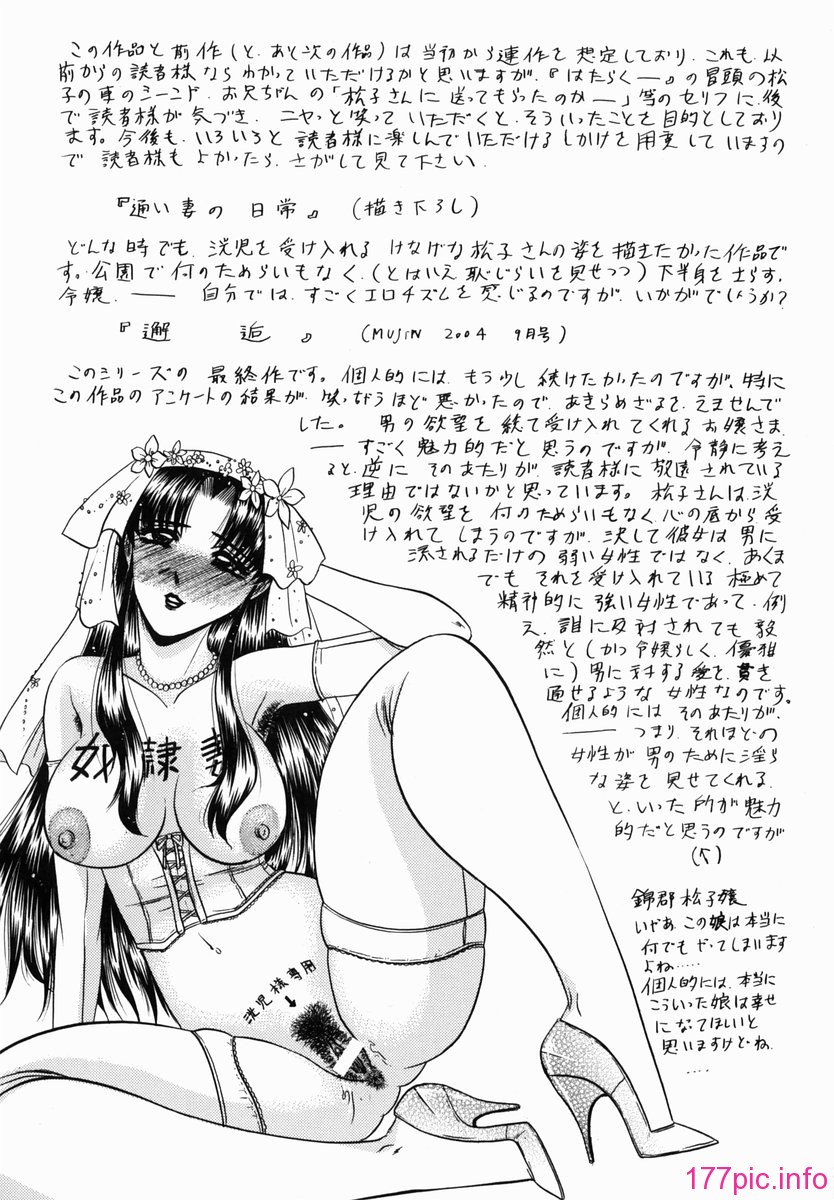 この作品と前作(と、あと次の作品)は当初から連作を想定しており、これも、以
前からの読者様ならわかっていただけるかと思いますが、『はたらく―』の冒頭の松
子の車のシーンや、お兄ちゃんの「松子さんに送ってもらったのか―」等のセリフに、後
で読者様が気づき、ニヤッと笑っていただくと、そういったことを目的としており
ます。今後も、いろいろと読者様に楽しんでいただけるしかけを用意していますの
で読者様もよかったら、さがして見て下さい。
『通い妻の日常』(描き下ろし)
どんな時でも、洸児を受け入れるけなげな松子さんの姿を描きたかった作品で
す。公園で何のためらいもなく、(とはいえ恥じらいを見せつつ)下半身を
令嬢、―― 自分では、すごくエロチズムを感じるのですが、いかがでしょうか?
『邂逅』(MUJIN 2004 9月号)
このシリーズの最終作です。個人的には、もう少し続けたかったのですが、特に
この作品のアンケートの結果が、笑っちゃうほど悪かったので、あきらめざるを、えませんで
した。男の欲望を続て受け入れてくれるお嬢さま、
―― すごく魅力的だと思うのですが、冷静に考え
ると、逆にそのあたりが、読者様に敬遠されている
理由ではないかと思っています。松子さんは、洸
児の欲望を何のためらいもなく、心の底から受
け入れてしまうのですが、決して彼女は男に
流されるだけの弱い女性ではなく、あくま
でもそれを受け入れている極めて
精神的に強い女性であって、例
え、誰に反対されても毅
然と(かつ令嬢らしく、優雅
に)男に対する愛を、貫き
通せるような女性なのです。
個人的にはそのあたりが、
―― つまり、それほどの
女性が男のために淫ら
な姿を見せてくれる
と、いった所が魅力
的だと思うのですが
奴隷妻
洸児様専用
錦郡松子嬢
いやあ、この娘は本当に
何でもやってしまいます
よね……
個人的には、本当に
こういった娘は幸せ
になってほしいと
思いますけどね、
‥‥
177pic.info